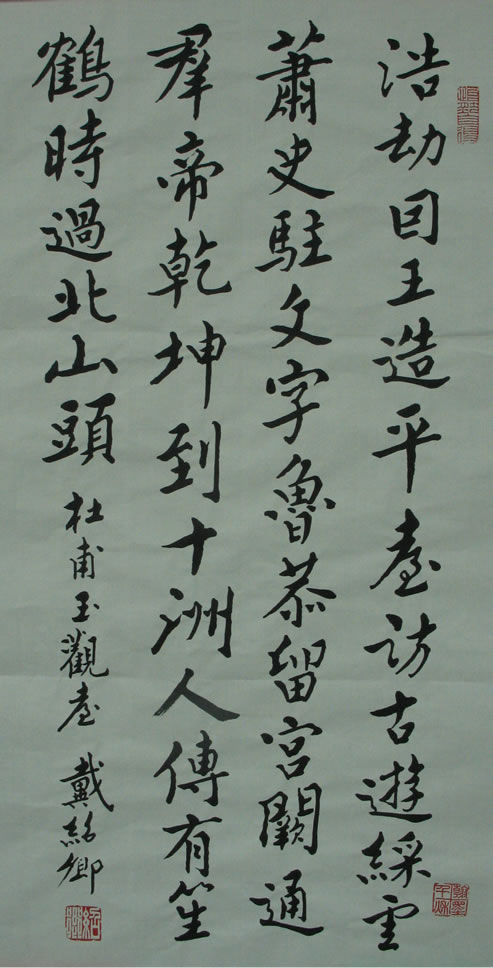 浩劫囙王造平臺訪古遊綵雲
蕭史駐文字魯恭留宮闕通
羣帝乾坤到十洲人傳有笙
鶴時過北山頭 杜甫玉觀臺 戴紹卿